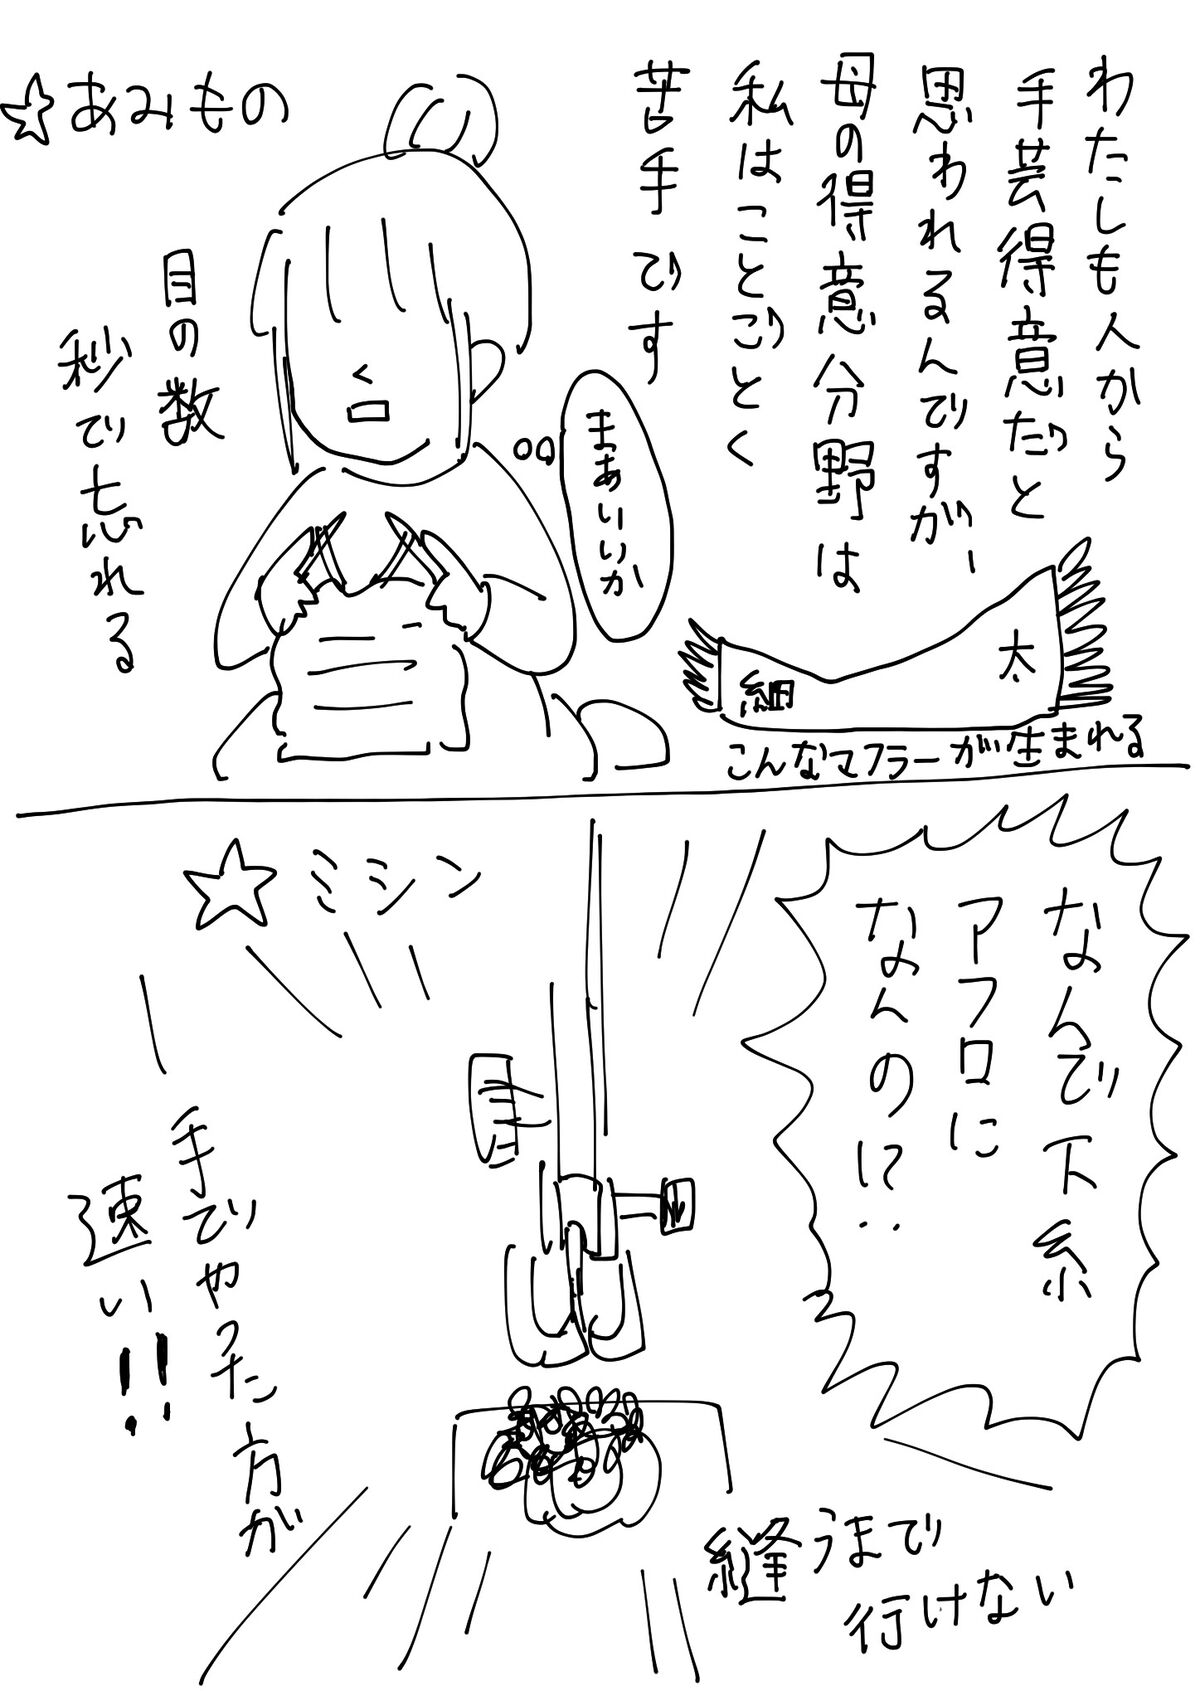 わたしも人から
手芸得意だと
思われるんですが、
母の得意分野は
私はことごとく
苦手です
☆あみもの
目の数
秒で忘れる
まあいいか
細
太
こんなマフラーが生まれる
☆ミシン
なんで下糸
アフロに
なんの!?
手でやった方が
速い!!
縫うまで
行けない